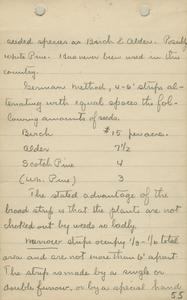 seeded species as Birch & Alder. Possibly
White Pine. Has never been used in this
country.
German Method, 4-6' strips al-
ternating with equal spaces the fol-
lowing amounts of seeds.
Birch #15 per acre.
Alder 7½
Scotch Pine 4
(Wh. Pine) 3
The stated advantage of the
broad strip is that the plants are not
choked out by weeds so badly.
Narrow strips occupy ⅓-⅒ total
area and are not more than 6' apart.
The strip is made by a single or
double furrow, or by a special hand
55